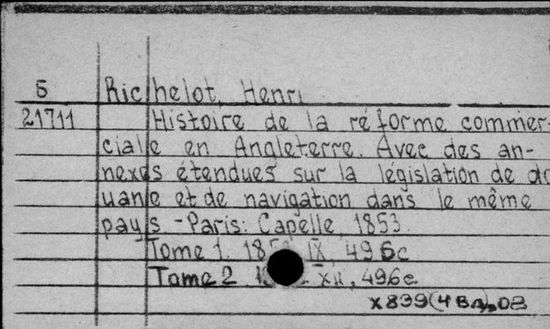 Б Richelot, Henri
21711 Histoire de la réforme commer-
ciale en Angleterre. Avec des an-
nexes étendues sur la législation de do
uane et de navigation dans le même
pays - Paris: Capelle, 1853.
Tome 1. IX, 496c
Tome 2 XII, 496c
x899(4Вл),08